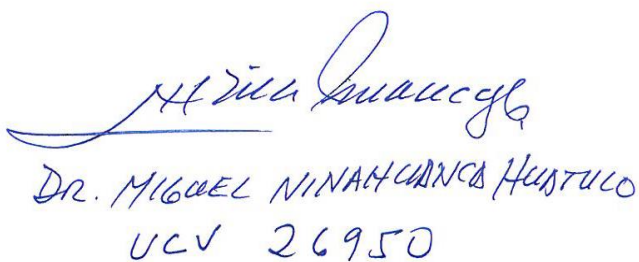 DR. MIGUEL NINAHUANCA HUATUCO
UCV 26950